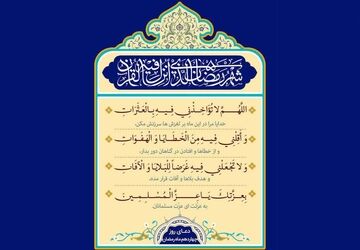 شهر رمضان الذی انزل فیه القرآن
اللّهُمَّ لا تُؤاخِذْنی فِیهِ بِالْعَثَراتِ
خدایا مرا در این ماه بر لغزش ها سرزنش مکن،
وَ اَقِلْنی فیهِ مِنَ الْخَطایا وَ الْهَفَواتِ
و از خطاها و افتادن در گناهان دور بدار،
وَ لا تَجْعَلْنی فیهِ غَرَضاً لِلْبَلایا وَ الْآفاتِ
و هدف بلاها و آفات قرار مده،
بِعِزَّتِکَ یا عِزَّ الْمُسْلِمینَ
به عزّتت ای عزّت مسلمانان.
دعای روز
چهاردهم ماه رمضان